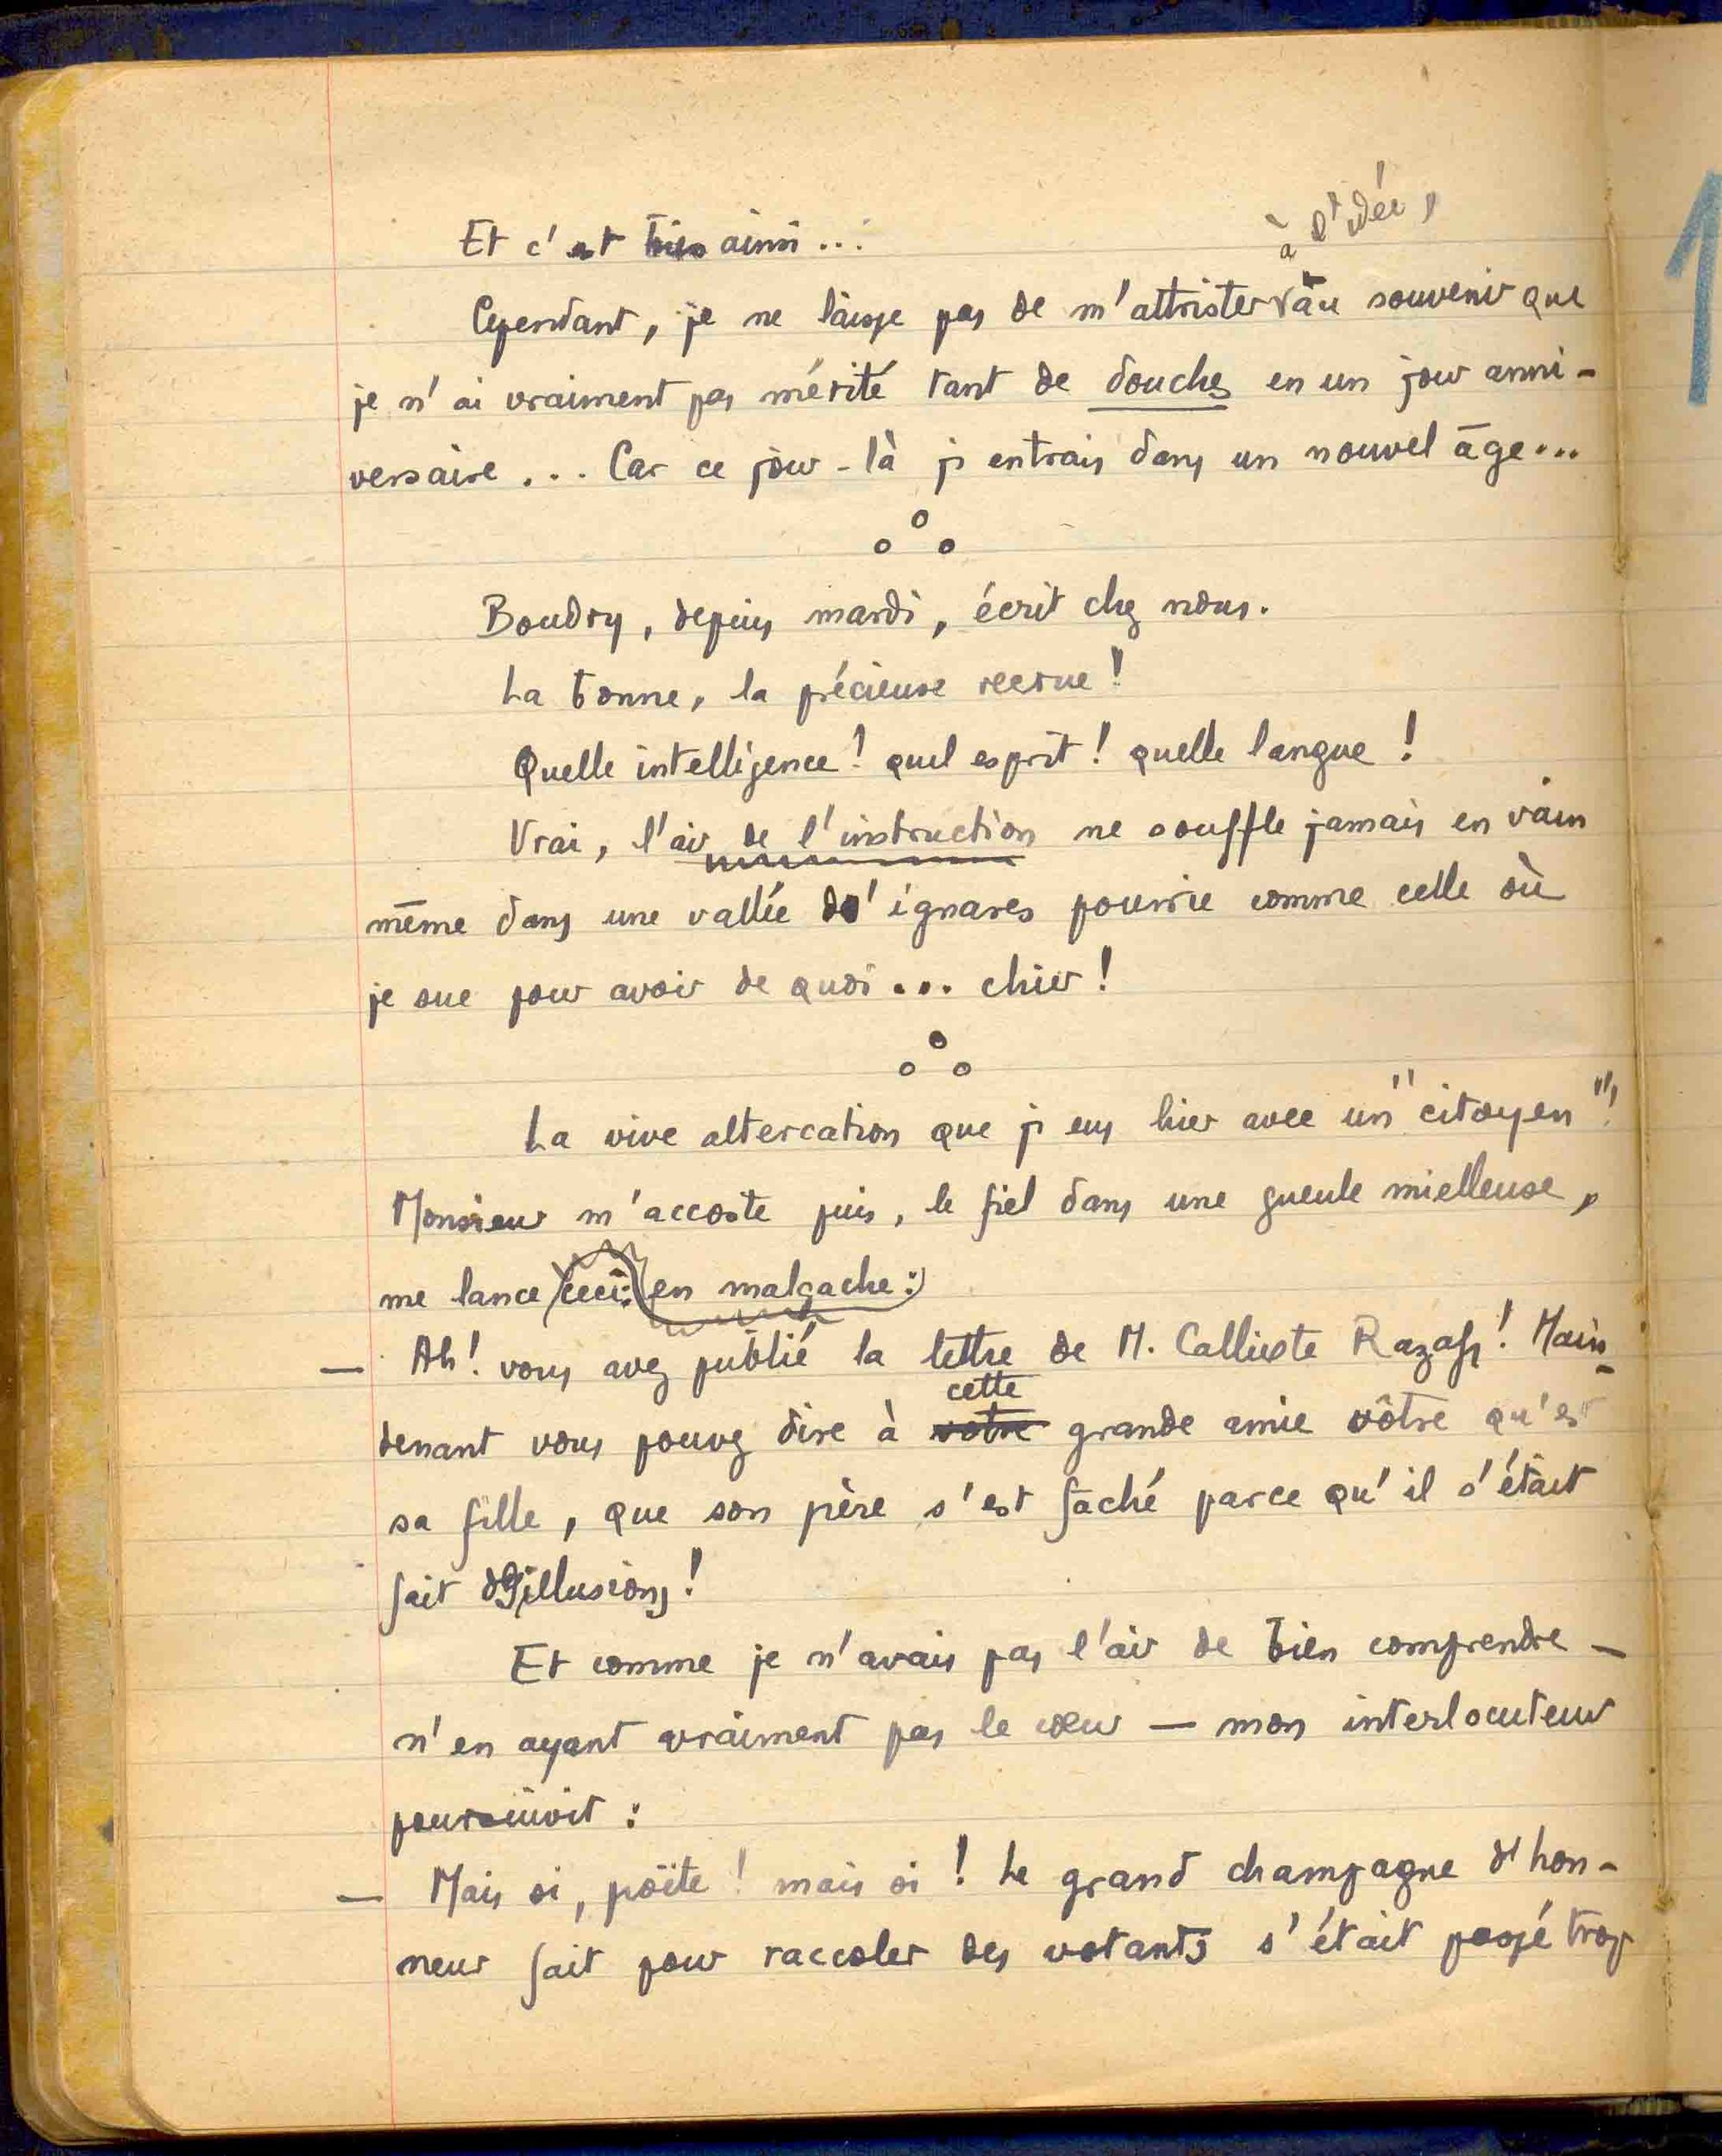 Et c'est bien ainsi...
à l'idée,
Cependant, je ne laisse pas de m'attrister au souvenir que
je n'ai vraiment pas mérité tant de douches en un jour anni-
versaire... Car ce jour-là j'entrais dans un nouvel âge...
Boudry, depuis mardi, écrit chez nous.
La bonne, la précieuse recrue!
Quelle intelligence! quel esprit! quelle langue!
Vrai, l'air de l'instruction ne souffle jamais en vain
même dans une vallée d'ignares pourrie comme celle où
je sue pour avoir de quoi... chier!
La vive altercation que j'eus hier avec un "citoyen"!
Monsieur m'accoste puis, le fiel dans une gueule mielleuse,
me lance ceci: en malgache:
— Ah! vous avez publié la lettre de M. Callixte Razafy! Main-
cette
tenant vous pouvez dire à votre grande amie vôtre qu'est
sa fille, que son père s'est fâché parce qu'il s'était
fait d'illusions!
Et comme je n'avais pas l'air de bien comprendre —
n'en ayant vraiment pas le cœur — mon interlocuteur
poursuivit:
— Mais si, poëte! mais si! Le grand champagne d'hon-
neur fait pour raccoler des votants s'était passé trop